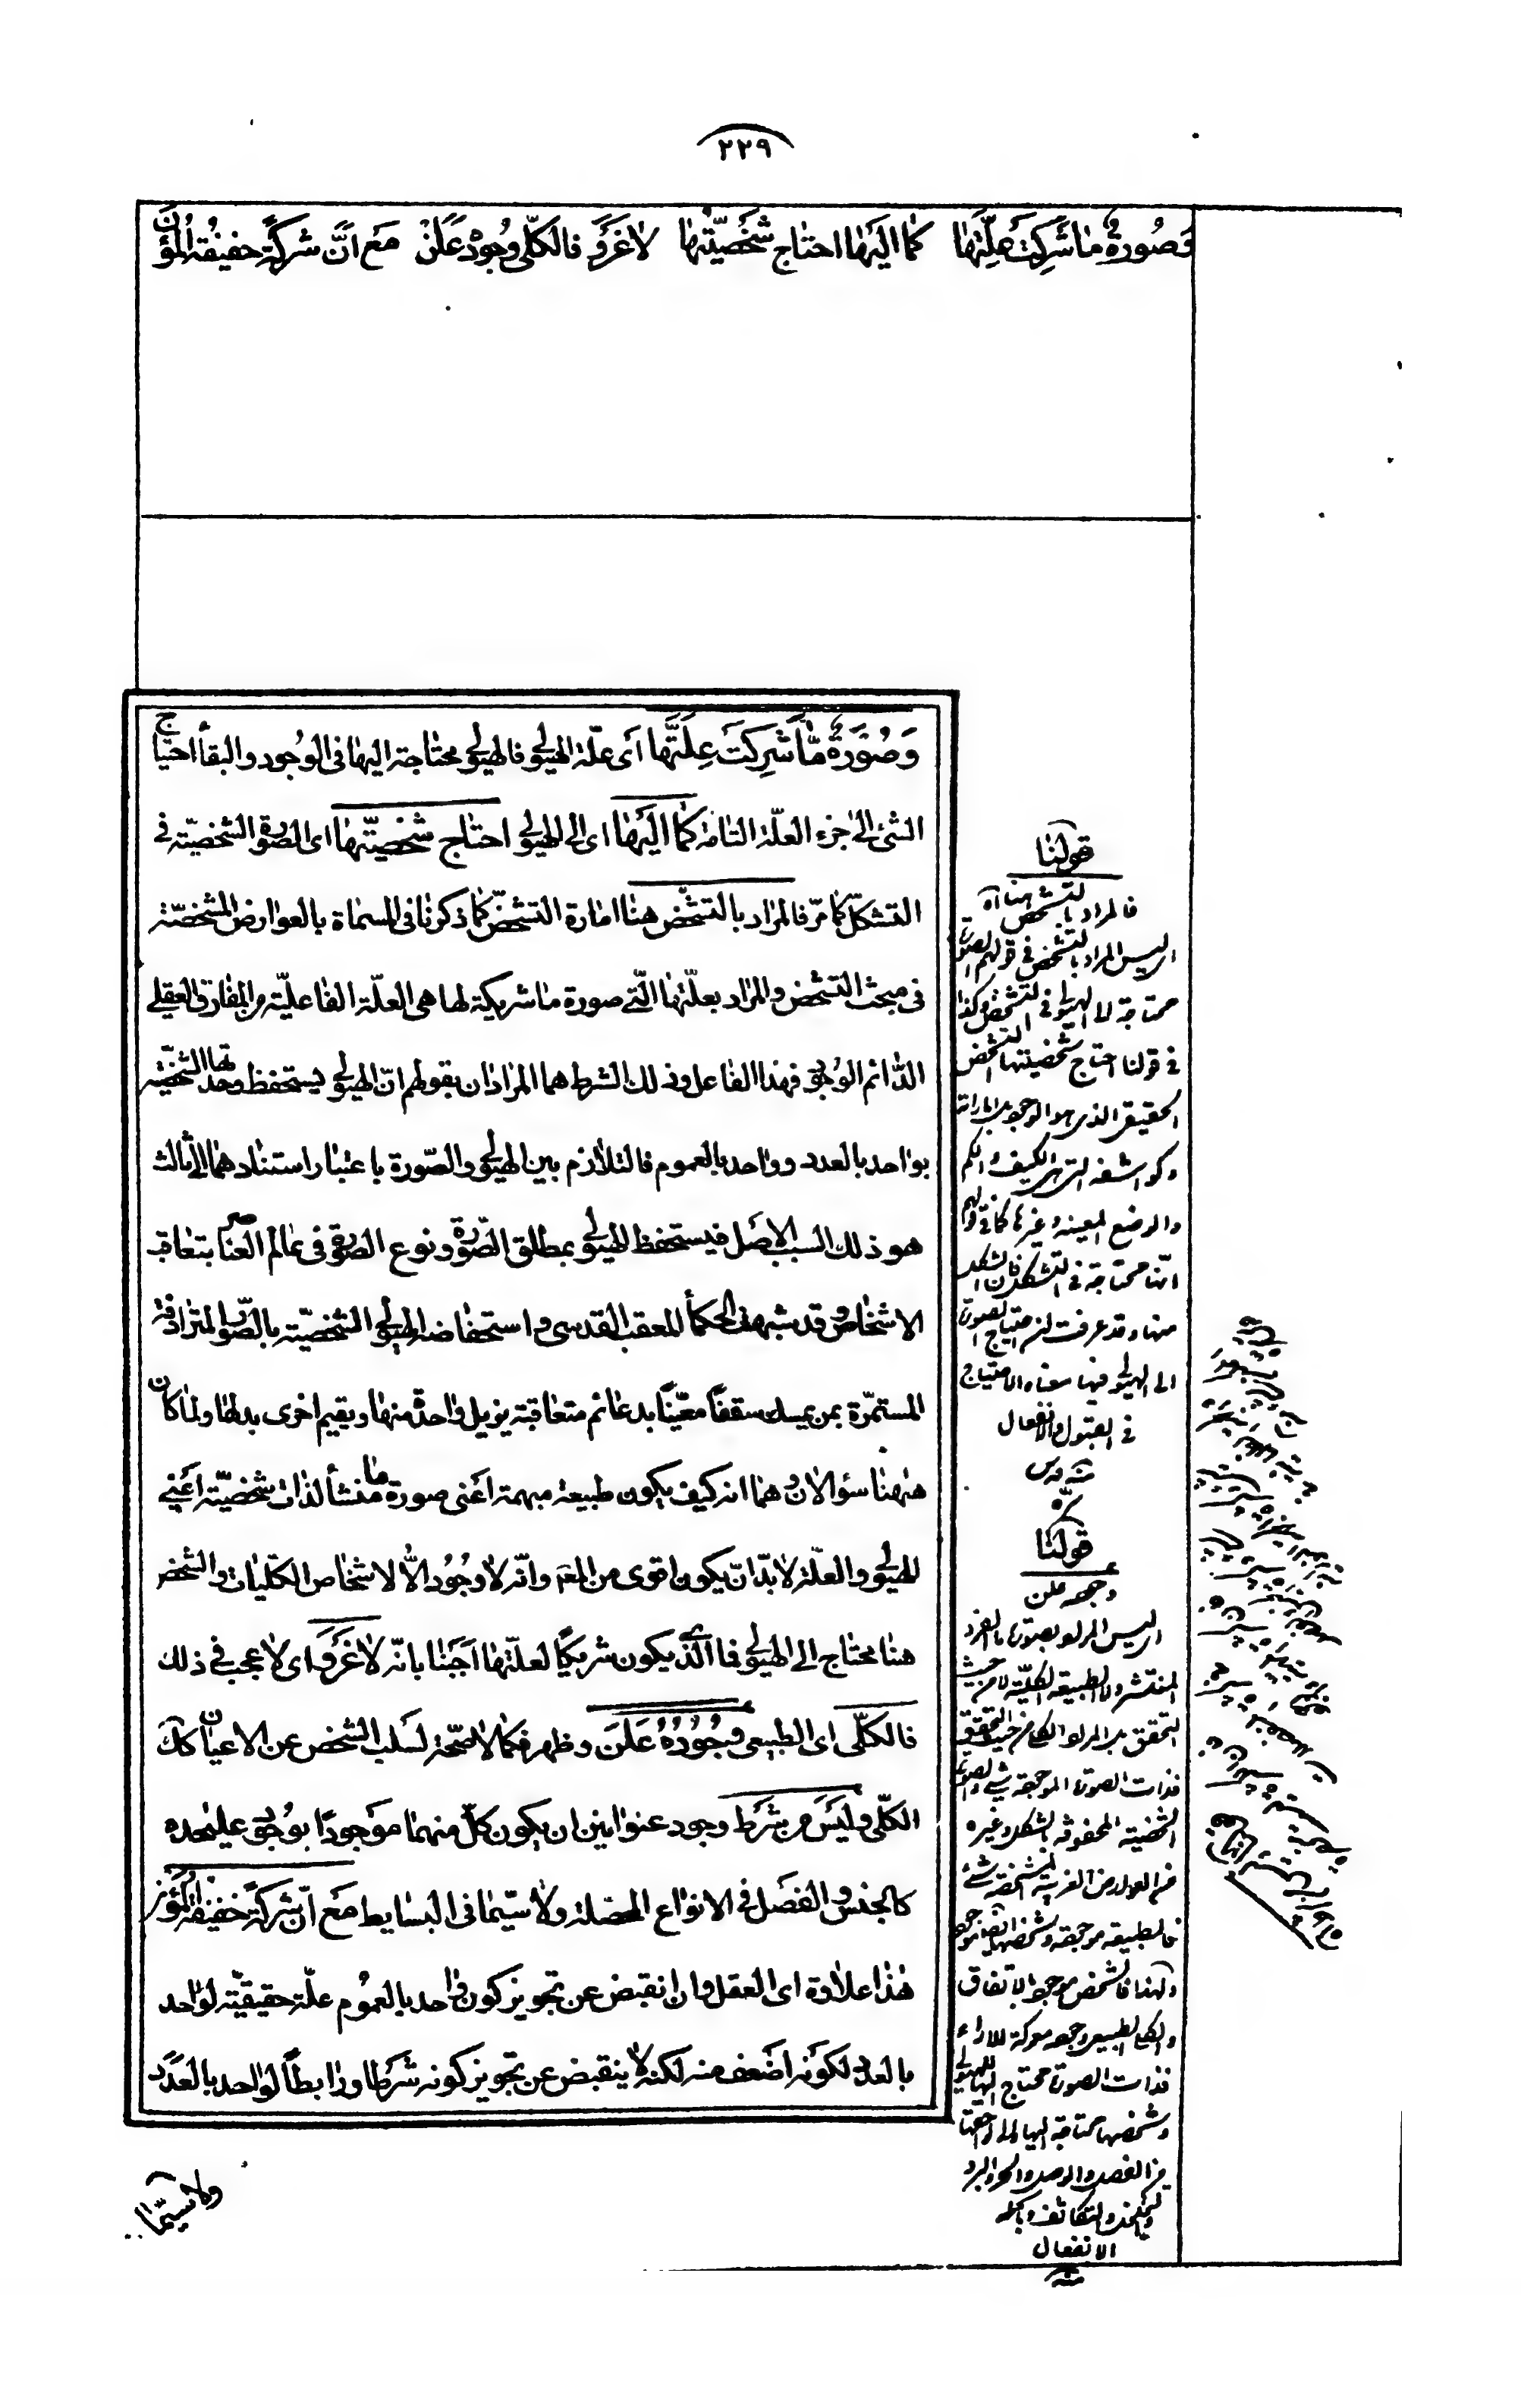 ٢٢٩
وصورة ما شركت علتها كما اليها احتاج شخصيتها لا غرو فالكلى وجوده علن مع ان شركة حقيقة المؤن
وَصُورَةٌ مّا شَرِكَت عِلَّتَها اى علّة الهيولى فالهيولى محتاجة اليها فى الوجود والبقاء احتياج
الشئ الى جزء العلّة التامة كما اليها اى الى الهيولى احتاج شخصيّتها اى الصورة الشخصيّة فى
التشكّل كما مرّ فالمراد بالتشخّص هنا امارة التشخّص كما ذكرنا فى المسماة بالعوارض المشخصّة
فى مبحث التشخّص والمراد بعلّتها الّتى صورة ما شريكة لها هى العلّة الفاعليّة من المفارق العقلى
الدائم الوجود فهذا الفاعل وذلك الشرط هما المرادان بقولهم انّ الهيولى يستحفظ وحدتها الشخصيّة
بواحد بالعدد وواحد بالعموم فالتلازم بين الهيولى والصّورة باعتبار استنادهما الى ثالث
هو ذلك السبب الاصل فيستحفظ الهيولى بمطلق الصّورة ونوع الصورة فى عالم العناصر بتعاقب
الاشخاص وقد شبه الحكماء المعقب القدسى واستحفاضه الهيولى الشخصيّة بالصّور المترادفة
المستمرّة بمن يمسك سقفًا معيّنًا بدعائم متعاقبة يزيل واحدة منها ويقيم اخرى بدلها ولما كان
هيهنا سؤالان وهما انه كيف يكون طبيعة مبهمة اعنى صورة ما منشأ لذات شخصيّة اعنى
الهيولى والعلّة لا بدّ انّ يكون اقوى من المعـ وانّه لا وجُود الّا لاشخاص الكلّيات والشخص
هنا محتاج الى الهيولى فما الّذى يكون شريكًا لعلّتها اجبنا بانّه لا غرو اى لا عجب فى ذلك
فالكلّى اى الطبيعى وجُودهُ علن وظهر فكما لا صحّة لسلب الشخص عن الاعيان كك
الكلّى وليس من شرط وجود عنوانين ان يكون كلّ منهما موجودًا بوجود عليحده
كالجنس والفصل فى الانواع المحصّلة ولا سيّما فى البسايط مع انّ شركة حقيقة المؤن
هذا علاوة اى العقل وان انقبض عن تجويز كون واحد بالعموم علّة حقيقيّة لواحد
بالعدد لكونه اضعف منه لكنه لا ينقبض عن تجويز كونه شرطا ورابطًا لواحد بالعدد
ولا سيّما
قولنا
فالمراد بالتشخص هنا آه
اى ليس المراد بالتشخص فى قولهم الصورة
محتاجة الى الهيولى فى التشخص وكذا
فى قولنا احتاج شخصيتها التشخص
الحقيقى الذى هو الوجود بل اماراته
وكواشفه التى هى الكيف والكم
والوضع المعينة وغيرها كما فى قولهم
انّها محتاجة فى التشكل
منها وقد عرفت ان احتياج الصورة
الى الهيولى فيها معناه الاحتياج
فى القبول والانفعال
منه قدس سره
قولنا
وجوده علن
اى ليس المراد بصورة ما الفرد
المنتشر ولا الطبيعة الكلّيّة لا من حيث
التحقق بل المراد الكلى من حيث التحقق
فذات الصورة الموجودة شئ والصورة
الشخصية المحفوفة بالشكل وغيره
من العوارض الغريبة المشخصة شئ
فالطبيعة موجودة وشخصها ايضا موجود
ولهذا فالشخص موجود بالاتفاق
والكلى الطبيعى وجوده معركة للاراء
فذات الصورة محتاج اليها للهيولى
وشخصها محتاجة اليها فى لواحقها
من الفصل والوصل والحر والبرد
والتخلخل والتكاثف وبالجملة
الانفعال
منه